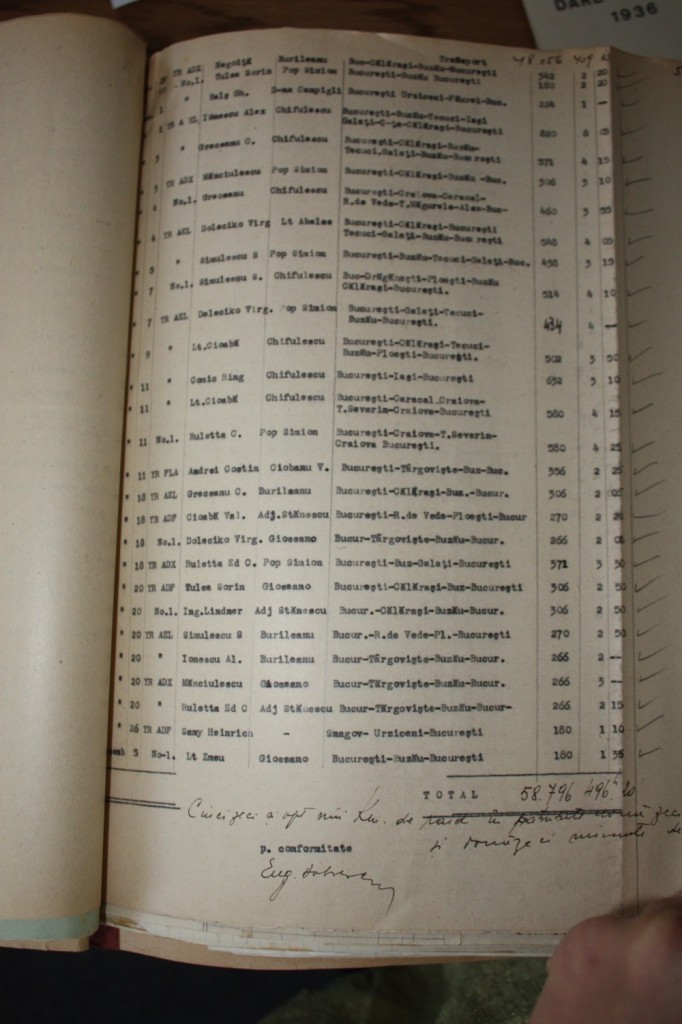 DARE
1936
Transport 48.056 409
" YR ADX Negoiţă Burileanu Buc-Călăraşi-Buzău-Bucureşti 542 2 20
" No.1. Tulea Sorin Pop Simion Bucureşti-Buzău Bucureşti 180 2 20
1 " Balş Gh. D-na Campigli Bucureşti Urziceni-Făurei-Buc. 224 1 —
1 YR A EL Ionescu Alex Chifulescu Bucureşti-Buzău-Tecuci-Iaşi
Galaţi-C-ţa-Călăraşi-Bucureşti 820 8 05
3 " Greceanu C. Chifulescu Bucureşti-Călăraşi-Buzău-
Tecuci.Galaţi-Buzău-Bucureşti 571 4 15
3 YR ADX Mănciulescu Pop Simion Bucureşti-Călăraşi-Buzău -Buc. 306 3 10
4 No.1. Greceanu Chifulescu Bucureşti-Craiova-Caracal-
R.de Vede-T.Măgurele-Alex-Buc- 460 3 50
4 YR AEL Doleciko Virg Lt Abeles Bucureşti-Călăraşi-Bucureşti
Tecuci-Galaţi-Buzău-Bucureşti 548 4 05
5 " Simulescu S Pop Simion Bucureşti-Buzău-Tecuci-Galaţi-Buc. 458 3 15
7 No.1. Simulescu S. Chifulescu Buc-Drăgăneşti-Ploeşti-Buzău
Călăraşi-Bucureşti. 514 4 10
7 YR AEL Doleciko Virg. Pop Simion Bucureşti-Galaţi-Tecuci-
Buzău-Bucureşti. 434 4 —
9 " Lt.Cioabă Chifulescu Bucureşti-Călăraşi-Tecuci-
Buzău-Ploeşti-Bucureşti. 502 3 50
" 11 " Comic Ring Chifulescu Bucureşti-Iaşi-Bucureşti 652 3 10
" 11 " Lt.Cioabă Chifulescu Bucureşti-Caracal.Craiova-
T.Severin-Craiova-Bucureşti 580 4 15
" 11 No.1. Ruletta C. Pop Simion Bucureşti-Craiova-T.Severin-
Craiova Bucureşti. 580 4 25
" 11 YR FLA Andrei Costin Ciobanu V. Bucureşti-Târgovişte-Buz-Buc. 356 2 25
" 18 YR AEL Greceanu C. Burileanu Bucureşti-Călăraşi-Buz.-Bucur. 306 2 05
" 18 YR ADF Cioabă Val. Adj.Stănescu Bucureşti-R.de Vede-Ploeşti-Bucur 270 2
" 18 No.1. Doleciko Virg. Giossano Bucur-Târgovişte-Buzău-Bucur. 266 2
" 18 YR ADX Ruletta Ed C. Pop Simion Bucureşti-Buz-Galaţi-Bucureşti 371 3 50
" 20 YR ADF Tulea Sorin Giossano Bucureşti-Călăraşi-Buz-Bucureşti 306 2 50
" 20 No.1. Ing.Lindner Adj Stănescu Bucur.-Călăraşi-Buzău-Bucur. 306 2 50
" 20 YR AEL Simulescu S Burileanu Bucur.-R.de Vede-Pl.-Bucureşti 270 2 50
" 20 " Ionescu Al. Burileanu Bucur-Târgovişte-Buzău-Bucur. 266 2 —
" 20 YR ADX Mănciulescu Giossano Bucur-Tărgovişte-Buzău-Bucur. 266 3 —
" 20 " Ruletta Ed C Adj Stănescu Bucur-Tărgovişte-Buzău-Bucur- 266 2 15
" 26 YR ADF Saxy Heinrich - Snagov- Urziceni-Bucureşti 180 1 10
5 No-1. Lt Zmeu Giossano Bucureşti-Buzău-Bucureşti 180 1 35
TOTAL 58.796 496 20
Cinci zeci şi opt mii Km. de raid în
şi douăzeci minute de
p. conformitate
Eug.